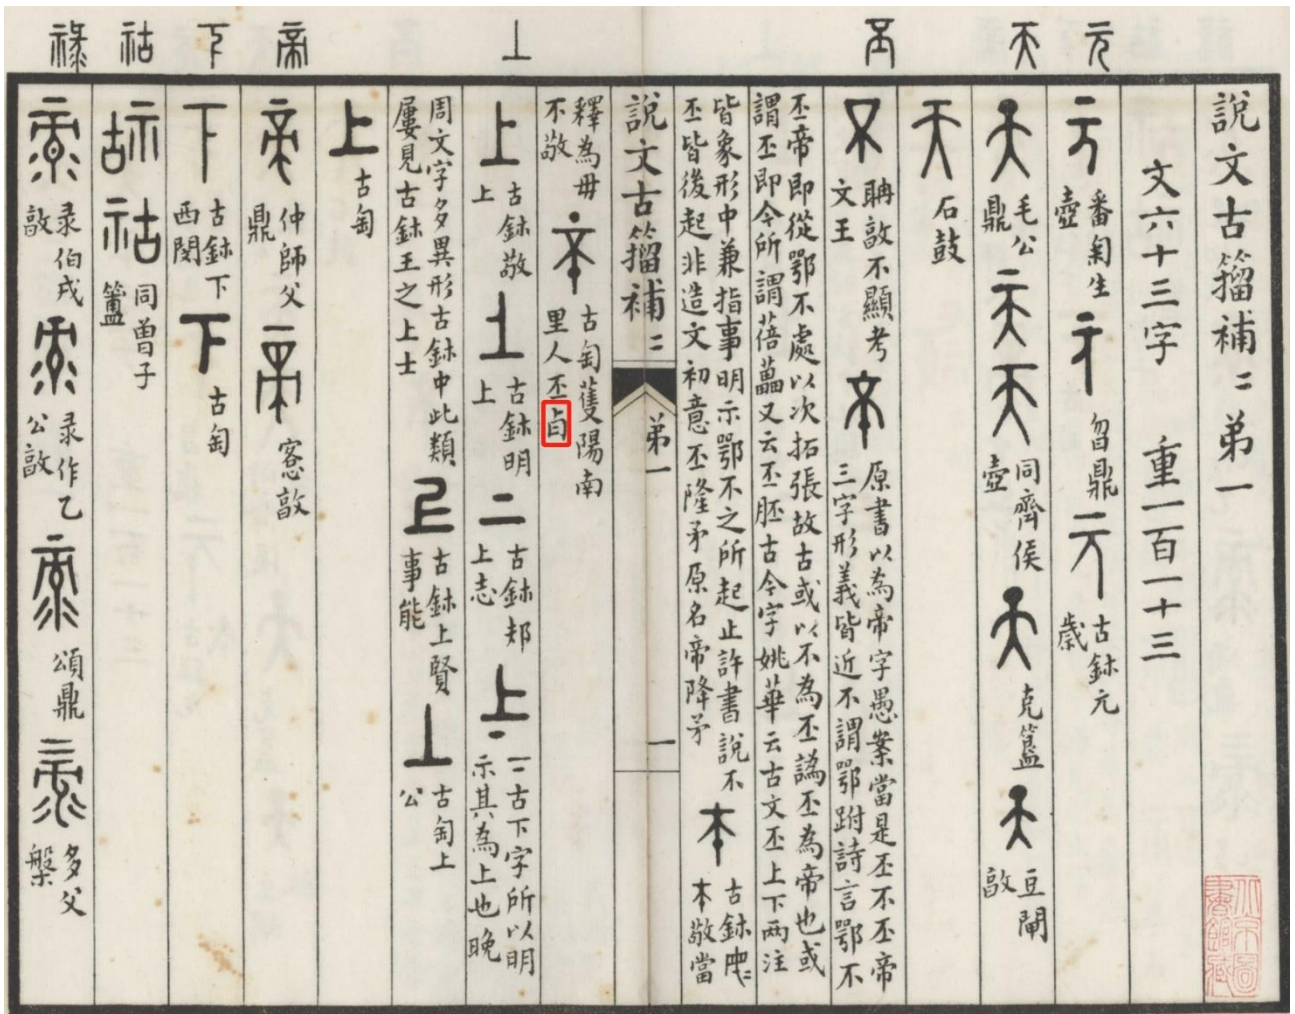 元 天 丕 丄 帝 丅 祜 祿
說文古籀補二 弟一
文六十三字 重一百一十三
番匊生壺
曶鼎
古鉥元歲
毛公鼎
同齊侯壺
克簋
豆閉敦
石鼓
聃敦不顯考文王
原書以為帝字愚案當是丕不丕帝三字形義皆近不謂鄂跗詩言鄂不
丕帝即從鄂不處以次拓張故古或以不為丕譌丕為帝也或謂丕即今所謂蓓蕌又云丕胚古今字姚華云古文丕上下兩注
皆象形中兼指事明示鄂不之所起止許書說不丕皆後起非造文初意丕隆矛原名帝降矛
古鉥本敬當
說文古籀補二 弟一 一
釋為毋不敬
古匋蒦陽南里人丕
古鉥敬上
古鉥明上
古鉥郏上志
二古下字所以明示其為上也晚
周文字多異形古鉥中此類屢見古鉥王之上士
古鉥上賢事能
古匋上公
上 古匋
仲師父鼎
愙敦
下 古鉥下西閔
下 古匋
祜 同曾子簠
彔伯戎敦
彔作乙公敦
頌鼎
多父槃